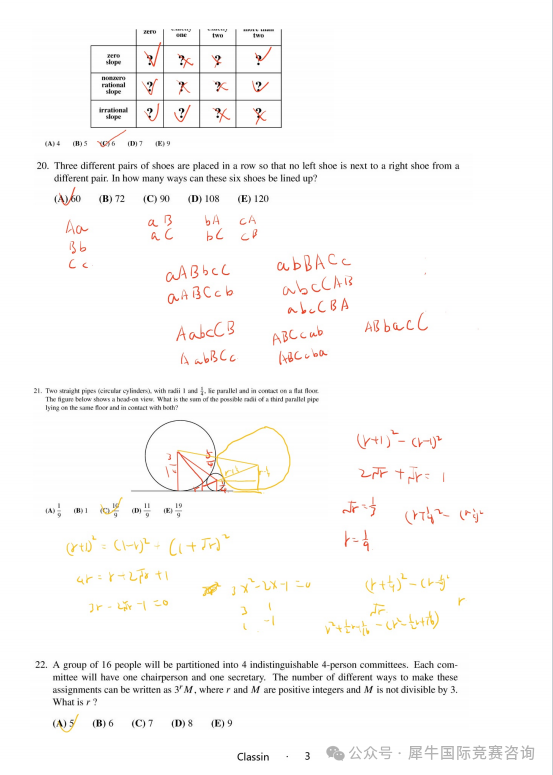 zero
exactly one
exactly two
more than two
zero slope ? ? ? ?
nonzero rational slope ? ? ? ?
irrational slope ? ? ? ?
(A) 4 (B) 5 (C) 6 (D) 7 (E) 9
20. Three different pairs of shoes are placed in a row so that no left shoe is next to a right shoe from a
different pair. In how many ways can these six shoes be lined up?
(A) 60 (B) 72 (C) 90 (D) 108 (E) 120
Aa a B bA cA
Bb a C bC cB
Cc
aABbcC abBACc
aABCcb abcCAB
abcCBA
AabcCB ABCcab ABbacC
AabBCc ABCcba
21. Two straight pipes (circular cylinders), with radii 1 and 1/4, lie parallel and in contact on a flat floor.
The figure below shows a head-on view. What is the sum of the possible radii of a third parallel pipe
lying on the same floor and in contact with both?
(r+1)² - (r-1)²
2√r + √r = 1
√r = 1/3
r = 1/9
(A) 1/9 (B) 1 (C) 10/9 (D) 11/9 (E) 19/9
(r+1)² = (1-r)² + (1+√r)²
4r = r + 2√r + 1
3r - 2√r - 1 = 0
3x² - 2x - 1 = 0
3 1
1 -1
√r
r
22. A group of 16 people will be partitioned into 4 indistinguishable 4-person committees. Each com-
mittee will have one chairperson and one secretary. The number of different ways to make these
assignments can be written as 3^r M, where r and M are positive integers and M is not divisible by 3.
What is r ?
(A) 5 (B) 6 (C) 7 (D) 8 (E) 9
Classin · 3
公众号 · 犀牛国际竞赛咨询